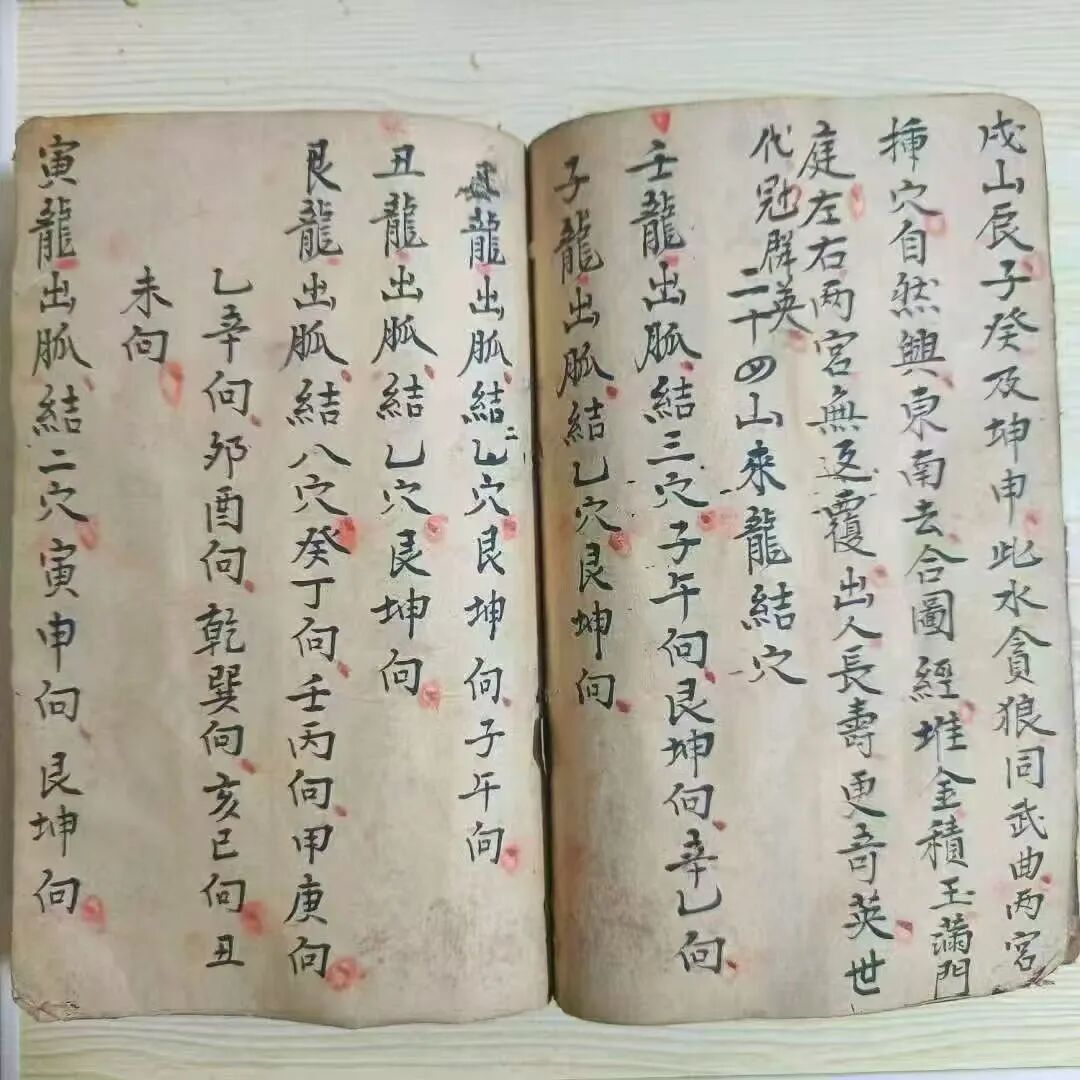 戌山辰子癸及坤申此水貪狼同武曲两宮
揷穴自然興東南去合圖經堆金積玉滿門
庭左右两宮無返覆出人長壽更奇英世
代冠群英
二十四山來龍結穴
壬龍出脈結三穴子午向艮坤向辛乙向
子龍出脈結乙穴艮坤向
龍出脈結二乙穴艮坤向子午向
丑龍出脈結乙穴艮坤向
艮龍出脈結八穴癸丁向壬丙向甲庚向
乙辛向夘酉向乾巽向亥巳向丑
未向
寅龍出脈結二穴寅申向艮坤向